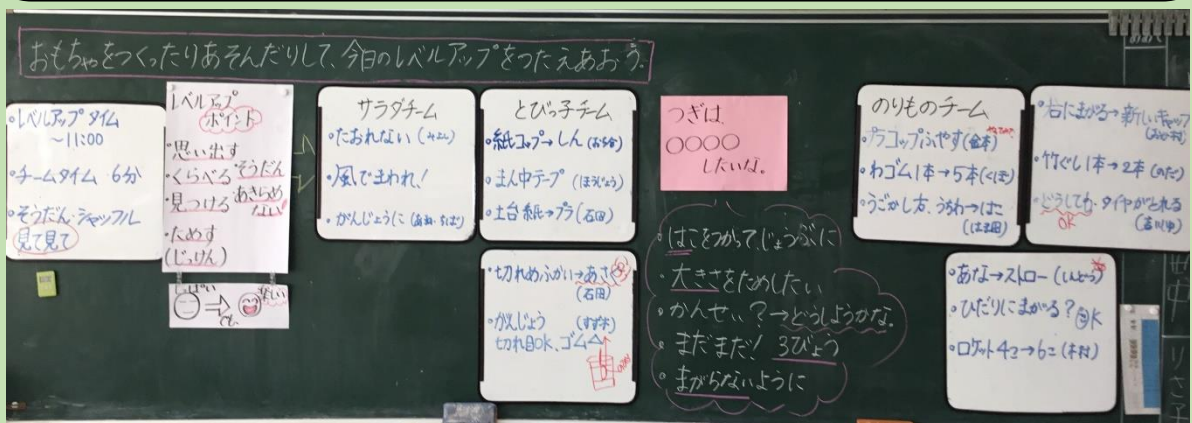 おもちゃをつくったりあそんだりして、今日のレベルアップをつたえあおう。
・レベルアップタイム
～11:00
・チームタイム 6分
・そうだん・シャッフル
見て見て
レベルアップ
ポイント
・思い出す
・くらべる そうだん
・見つける あきらめない
・ためす
(じっけん)
しっぱい
楽しい
サラダチーム
・たおれない
・風でまわれ!
・がんじょうに
とびっ子チーム
・紙コップ→しん
・まん中テープ (ほうじょう)
・土台 紙→プラ (石田)
・切れめふかい→あさい
(石田)
・がんじょう (すず木)
切れ目OK、ゴム△
つぎは、
○○○○
したいな。
・はこをつかって、じょうぶに
・大きさをためしたい
・かんせい?→どうしようかな。
・まだまだ! 3びょう
・まがらないように
のりものチーム
・プラコップふやす
・わゴム1本→5本 (くぼ)
・うごかし方、うちわ→はこ
・右にまがる→新しいキャップ
・竹ぐし1本→2本 (のだ)
・どうしても、タイヤがとれる
OK
・あな→ストロー
・ひだりにまがる? OK
・ロケット4こ→6こ (木村)